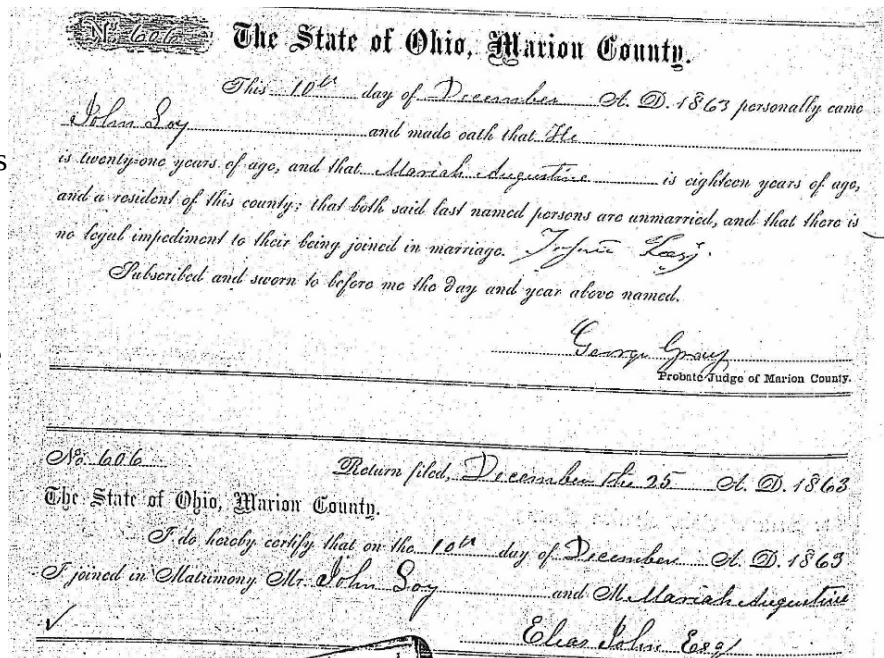 No. 606 The State of Ohio, Marion County.
This 10th day of December A. D. 1863 personally came
John Loy and made oath that He
is twenty-one years of age, and that Mariah Augustine is eighteen years of age,
and a resident of this county; that both said last named persons are unmarried, and that there is
no legal impediment to their being joined in marriage.
Subscribed and sworn to before me the day and year above named.
George Gray
Probate Judge of Marion County.
No. 606 Return filed, December the 25 A. D. 1863
The State of Ohio, Marion County.
I do hereby certify that on the 10th day of December A. D. 1863
I joined in Matrimony Mr. John Loy and M Mariah Augustine
Elias John Esq